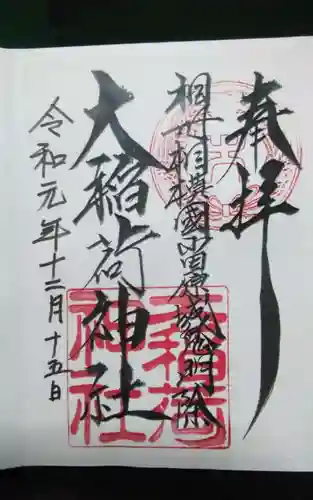 奉拝
相州相模國小田原城鬼門除
大稲荷神社
令和元年十二月十五日
大稲荷神社